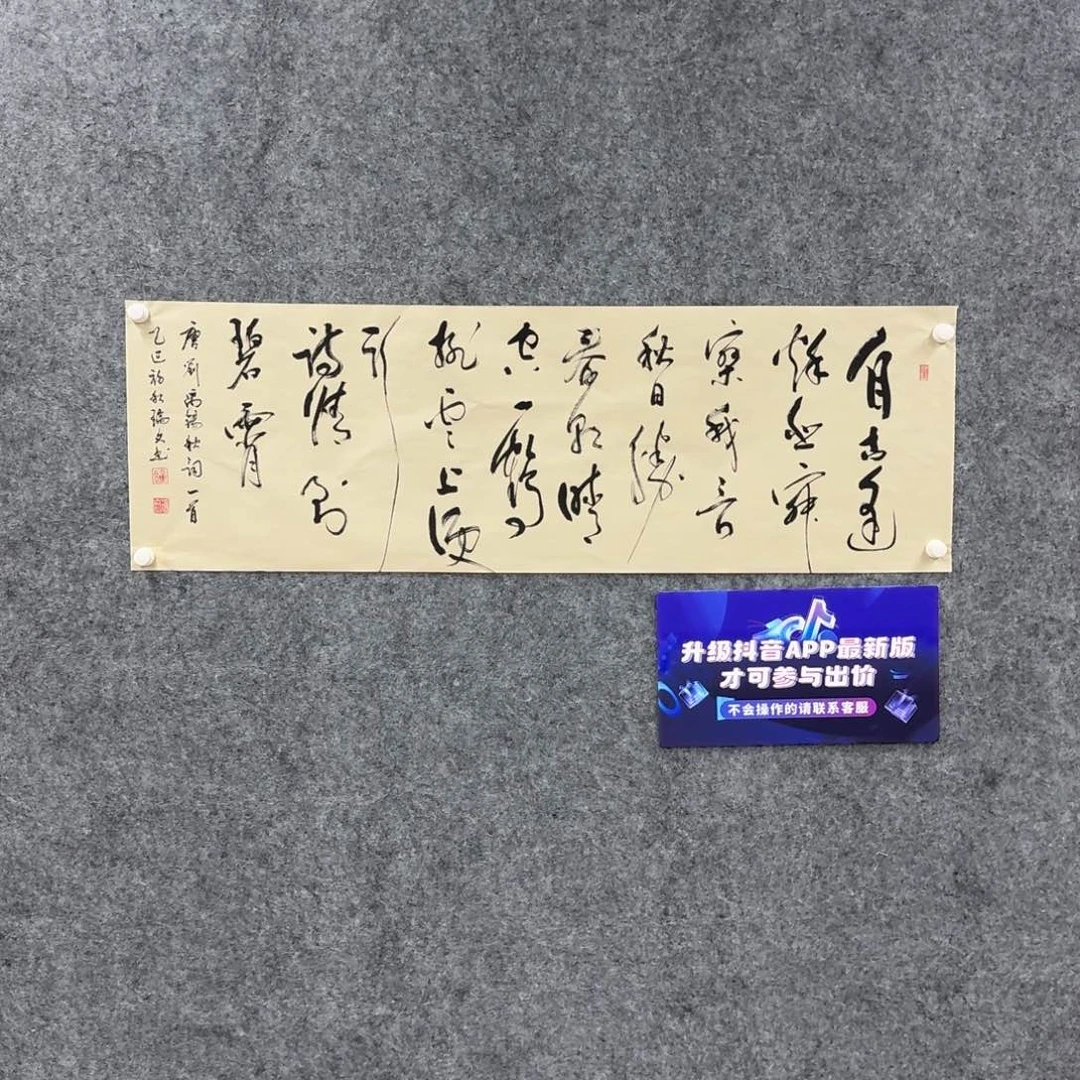 自古逢
秋悲寂
寥我言
秋日勝
春朝晴
空一鶴
排雲上便
引
詩情到
碧霄
唐劉禹錫秋詞一首
乙巳初秋瑞文書
升级抖音APP最新版
才可参与出价
不会操作的请联系客服